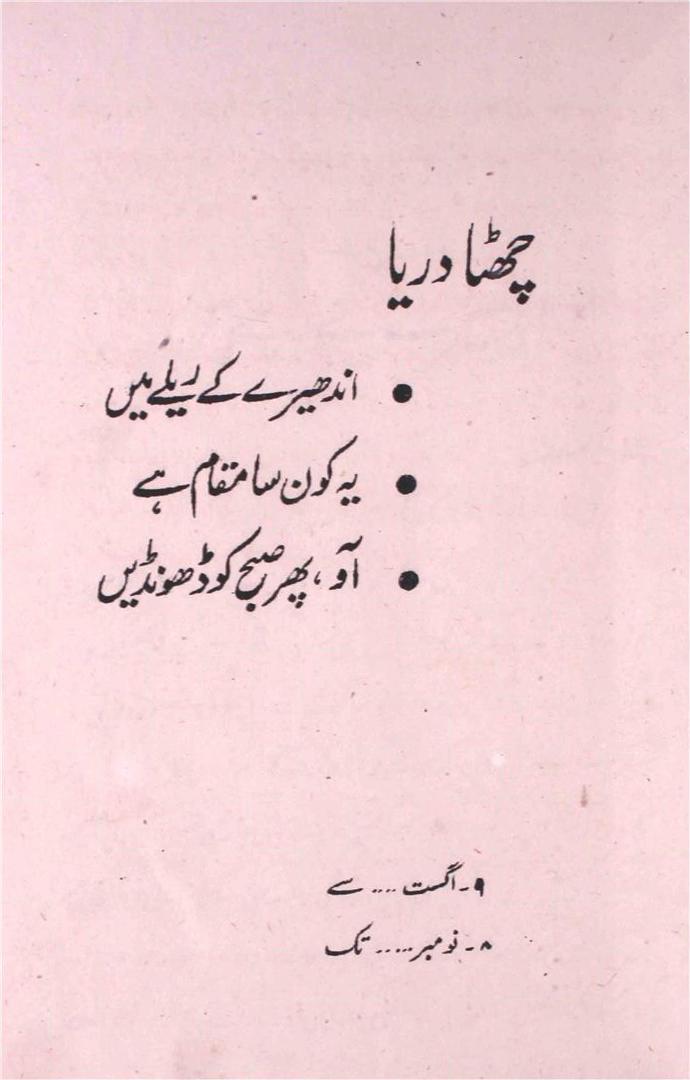 چھٹا دریا
• اندھیرے کے ریلے میں
• یہ کون سا مقام ہے
• آو، پھر صبح کو ڈھونڈیں
۹۔ اگست .... سے
۸۔ نومبر..... تک